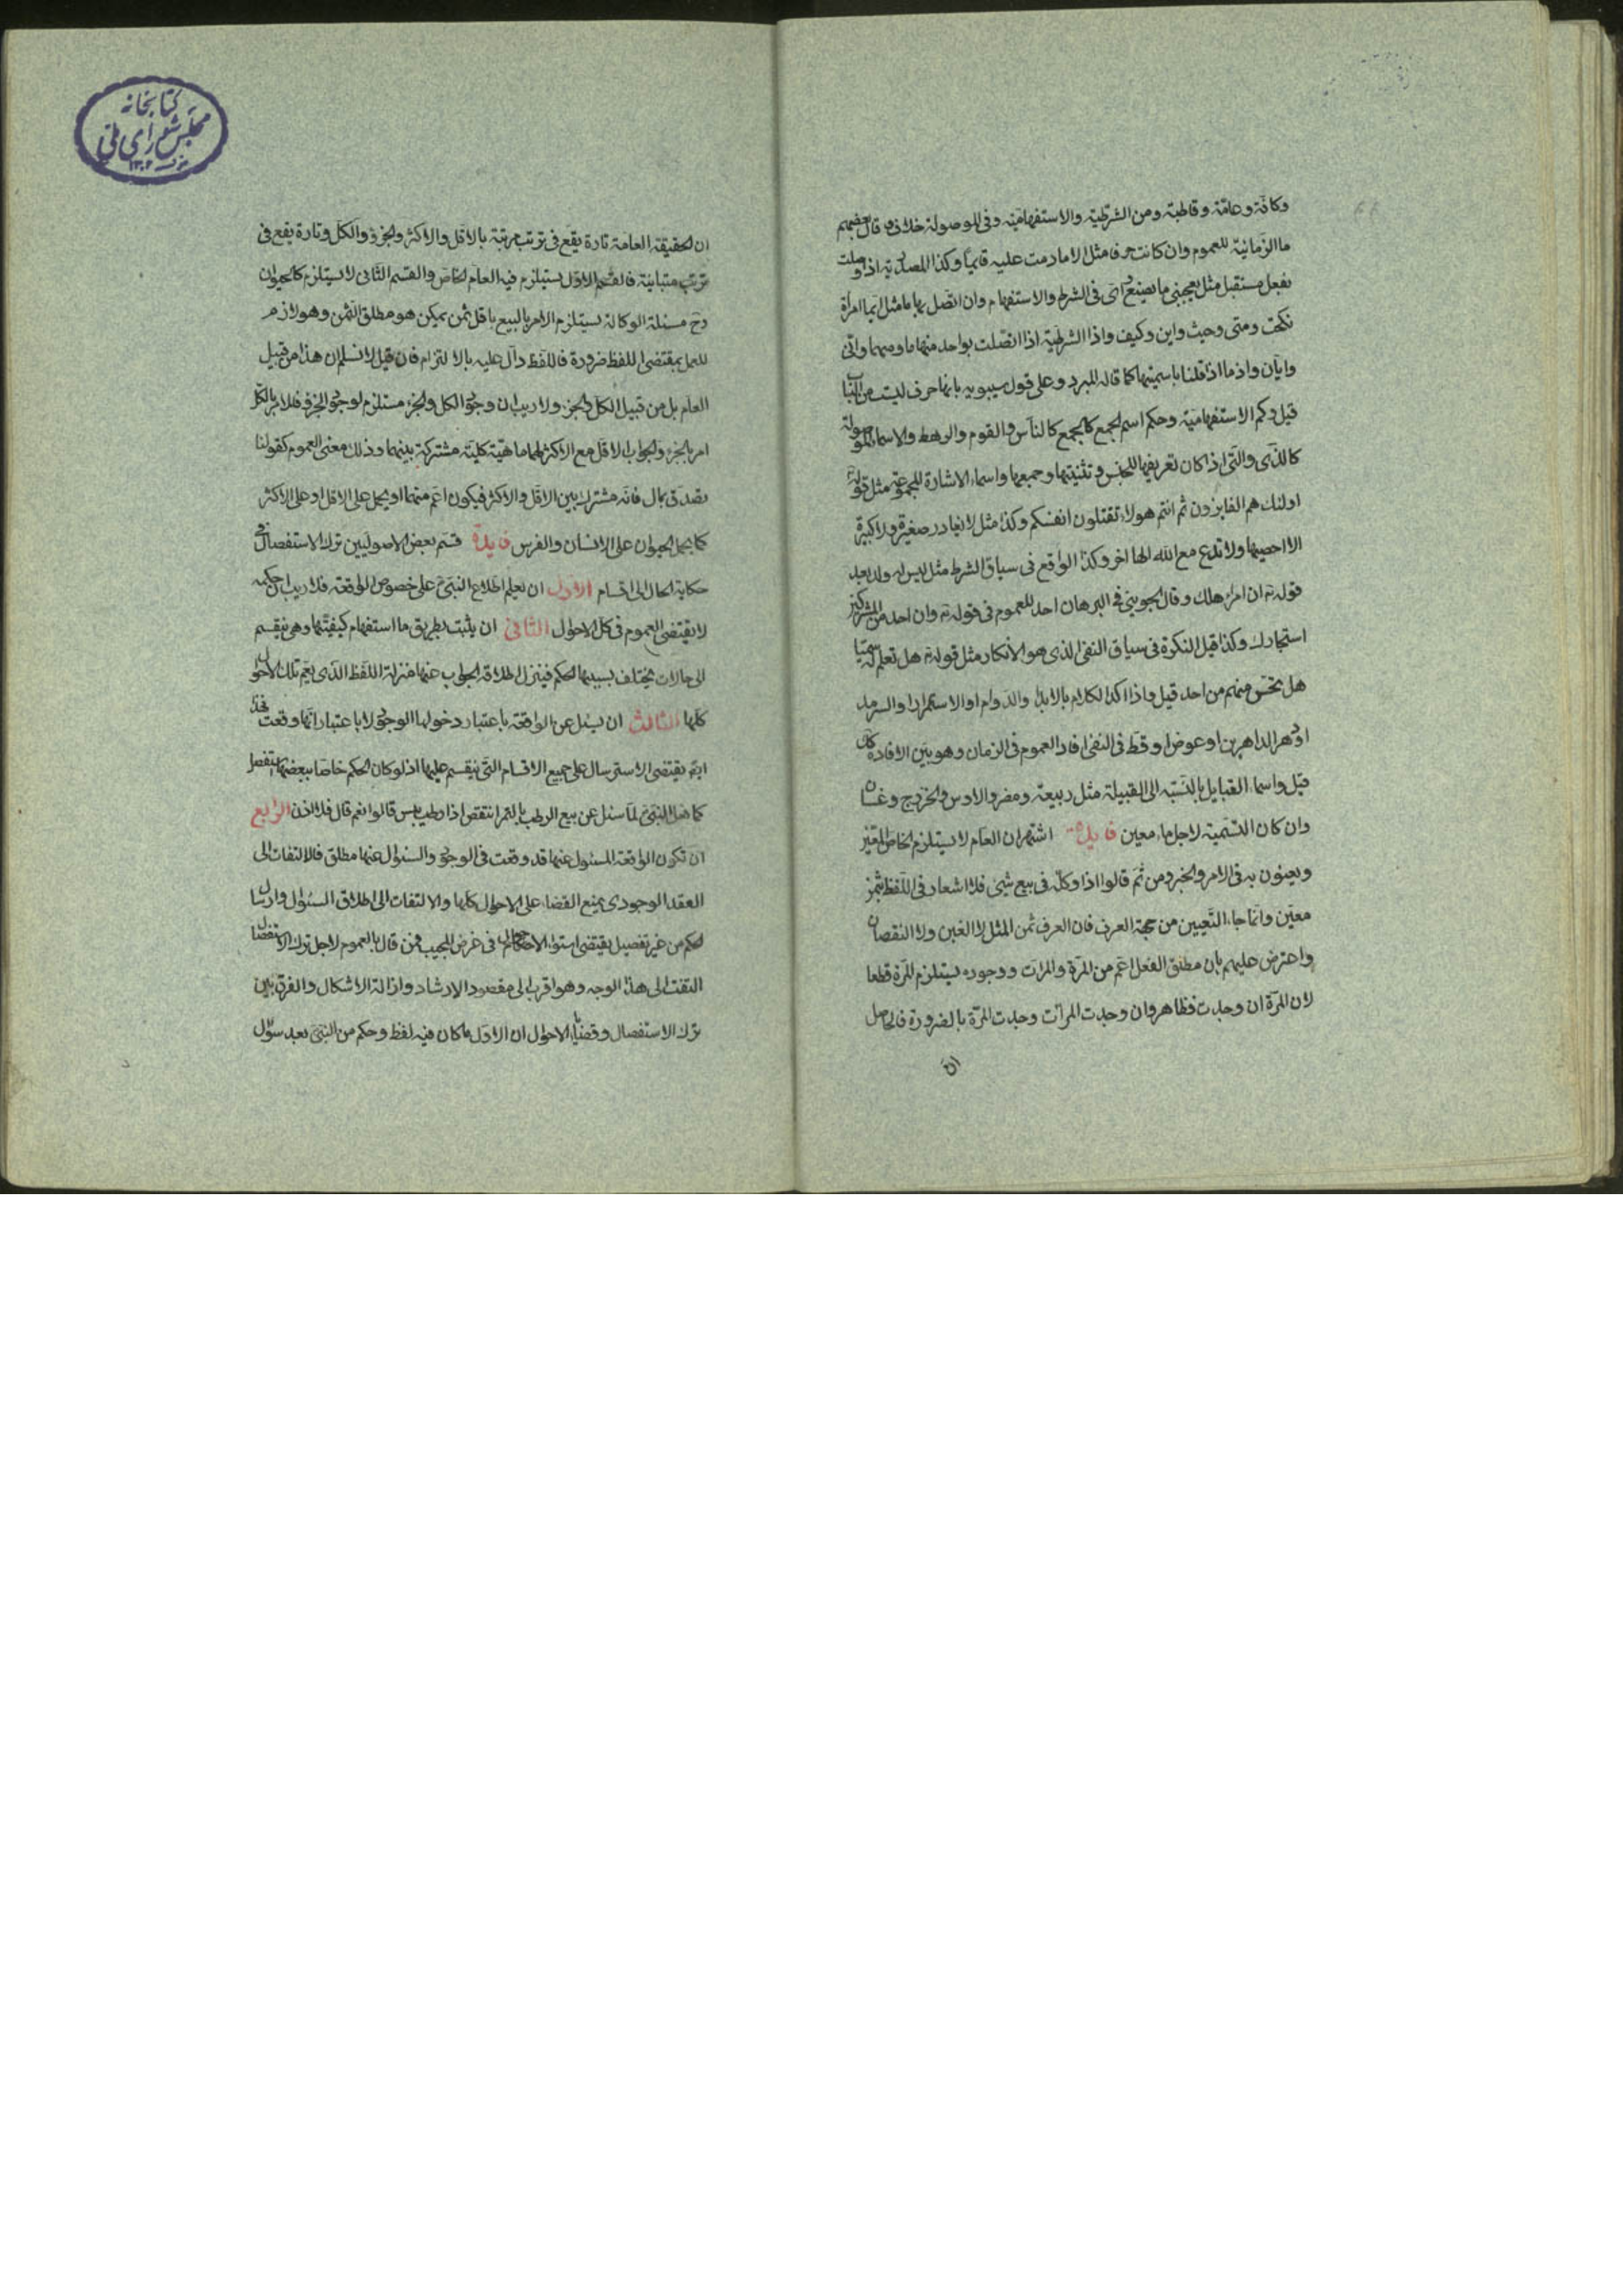 وكافّة وعامّة وقاطبة ومن الشرطيّة والاستفهاميّة وفي الموصولة خلاف وقال بعضهم
ما الزمانيّة للعموم وان كانت حرفا مثل الا ما دمت عليه قايمًا وكذا المصدريّة اذا وصلت
بفعل مستقبل مثل يعجبني ما يصنع واى في الشرط والاستفهام وان اتصل بها ما مثل ايّما امرأة
نكحت ومتى وحيث واين وكيف واذا الشرطيّة اذا اتصلت بواحد منها ما ومهما وانّى
وايّان واذما اذا قلنا باسميتها كما قاله المبرد وعلى قول سيبويه بانها حرف ليست من الباب
قيل وكم الاستفهاميّة وحكم اسم الجمع كالجمع كالناس والقوم والرهط والاسماء الموصولة
كالذى والتى اذا كان تعريفها للجنس وتثنيتها وجمعها واسماء الاشارة المجموعة مثل قوله
اولئك هم الفايزون ثم انتم هولاء تقتلون انفسكم وكذا مثل لا يغادر صغيرة ولا كبيرة
الا احصيها ولا تدع مع الله الها اخر وكذا الواقع في سياق الشرط مثل ليس له ولد بعد
قوله تع ان امرؤ هلك وقال الجويني في البرهان احد للعموم في قوله تع وان احد من المشركين
استجارك وكذا قيل النكرة في سياق النفى الذى هو الانكار مثل قوله تع هل تعلم له سميّا
هل تحس منهم من احد قيل واذا اكد الكلام بالابد او الدوام او الاستمرار او السرمد
او دهر الداهرين او عوض او قط في النفى افاد العموم في الزمان وهو بيّن الافادة كل
قيل واسماء القبايل بالنسبة الى القبيلة مثل ربيعة ومضر والاوس والخزرج وغسان
وان كان التسمية لاجل ماء معين فايدة اشتهر ان العام لا يستلزم الخاص المعيّن
ويعنون به في الامر والخبر ومن ثم قالوا اذا وكّله في بيع شىء فلا اشعار في اللفظ بثمن
معيّن وانما جاء التعيين من جهة العرف فان العرف ثمن المثل لا الغبن ولا النقصان
واعترض عليهم بان مطلق الفعل اعم من المرّة والمرات ووجوده يستلزم المرّة قطعا
لان المرّة ان وجدت فظاهر وان وجدت المرات وجدت المرّة بالضرورة فالحاصل
انّ
كتابخانه
مجلس شوراى ملى
ان الحقيقة العامة تارة يقع في ترتب مرتبة بالاقل والاكثر والجزؤ والكل وتارة يقع في
ترتب متباينة فالقسم الاول يستلزم فيه العام الخاص والقسم الثانى لا يستلزم كالحيوان
وح مسئلة الوكالة يستلزم الامر بالبيع باقل ثمن يمكن هو مطلق الثمن وهو لازم
للعمل بمقتضى اللفظ ضرورة فاللفظ دالّ عليه بالالتزام فان قيل لا نسلم ان هذا من قبيل
العام بل من قبيل الكل والجزء ولا ريب ان وجود الكل والجزء مستلزم لوجود الجزؤ فالامر بالكل
امر بالجزء والجواب الاقل مع الاكثر لهما ماهيّة كليّة مشتركة بينهما وذلك معنى العموم كقولنا
تصدق بمال فانه مشترك بين الاقل والاكثر فيكون اعم منهما او يحمل على الاقل او على الاكثر
كما يحمل الحيوان على الانسان والفرس فايدة قسم بعض الاصوليين ترك الاستفصال في
حكاية الحال الى اقسام الاول ان يعلم اطلاع النبى ص على خصوص الواقعة فلا ريب ان حكمه
لا يقتضى العموم في كل الاحوال الثانى ان يثبت بطريق ما استفهام كيفيتها وهى تنقسم
الى حالات يختلف بسببها الحكم فينزل اطلاقه الجواب عنها منزلة اللفظ الذى يعم تلك الاحوال
كلها الثالث ان يسئل عن الواقعة باعتبار دخولها الوجود لا باعتبار انها وقعت فهذا
ايض يقتضى الاسترسال على جميع الاقسام التى ينقسم عليها اذ لو كان الحكم خاصا ببعضها استفصل
كما فعل النبى ص لما سئل عن بيع الرطب بالتمر اينتقص اذا رطب يبس قالوا نعم قال فلا اذن الرابع
ان تكون الواقعة المسئول عنها قد وقعت في الوجود والسئوال عنها مطلق فالالتفات الى
العقد الوجودى يمنع القضاء على الاحوال كلها والالتفات الى اطلاق السئوال وارسال
الحكم من غير تفصيل يقتضى استواء الاحوال في غرض المجيب فمن قال بالعموم لاجل ترك الاستفصال
التفت الى هذا الوجه وهو اقرب الى مقصود الارشاد وازالة الاشكال والفرق بين
ترك الاستفصال وقضايا الاحوال ان الاول ما كان فيه لفظ وحكم من النبى ص بعد سؤال